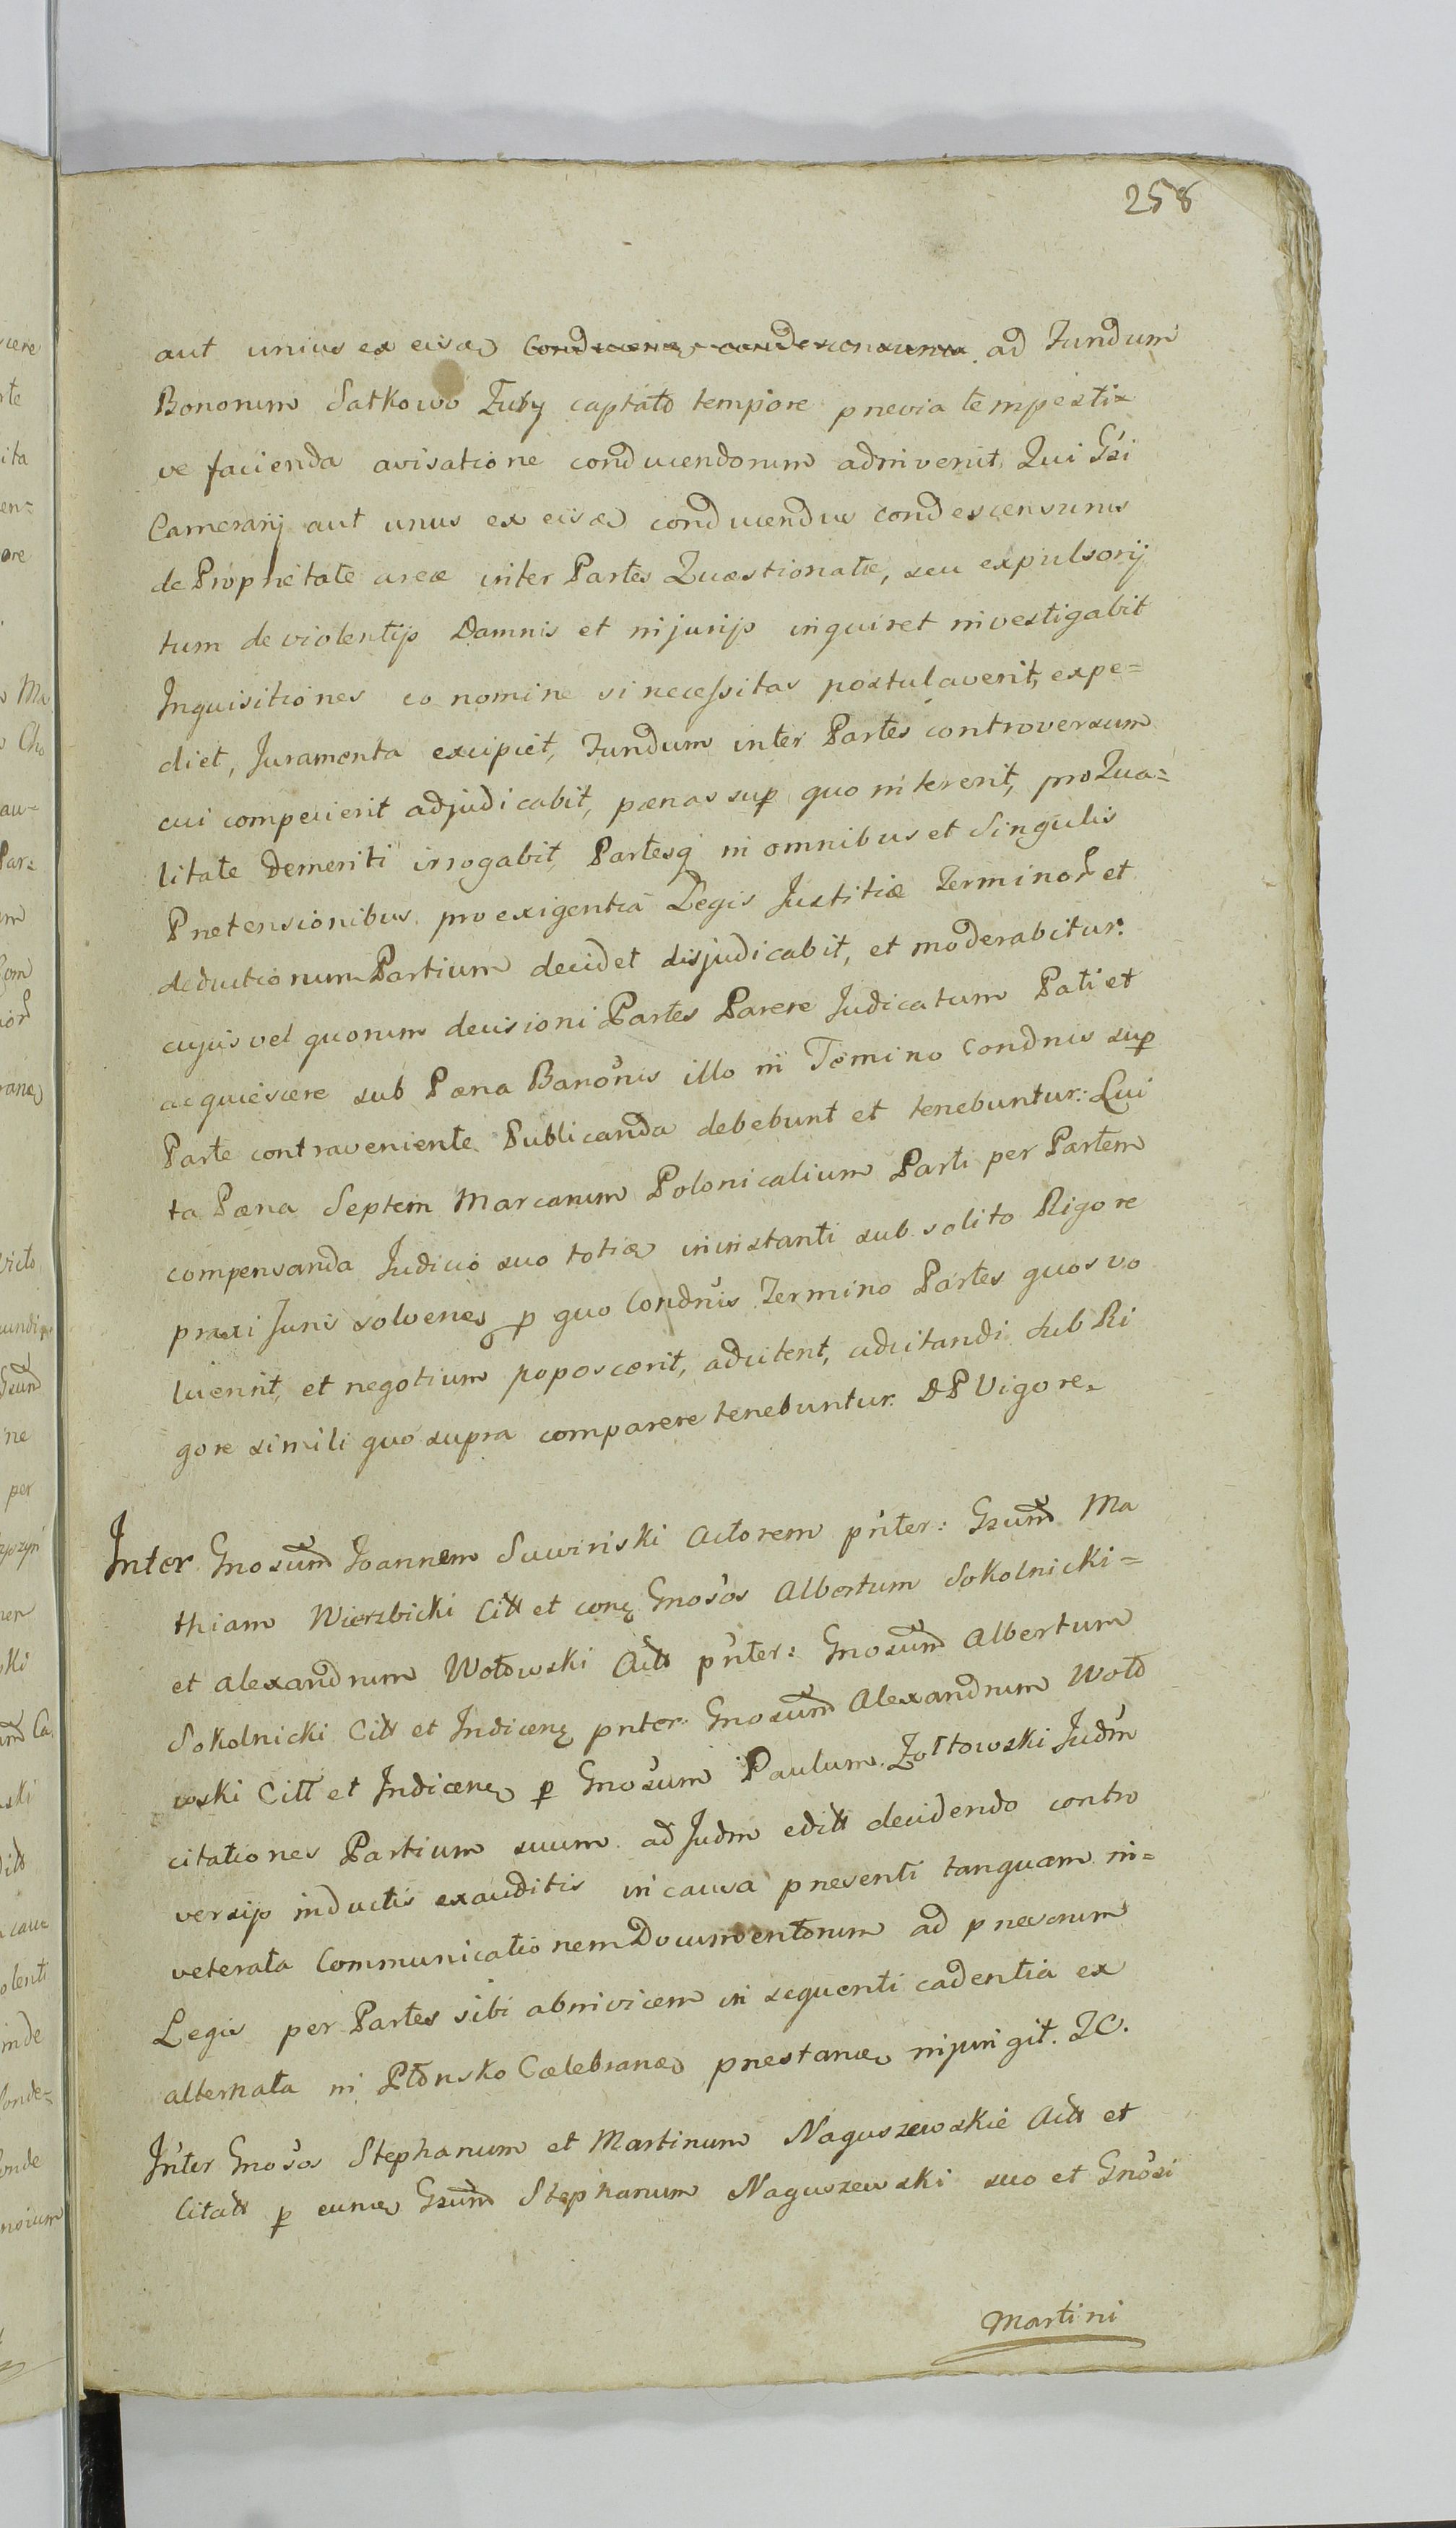 258
aut unius ex eisd ad Fundum
Bonorum Satkowo Fuby captato tempore prævia tempesti=
ve facienda avisatione conducendorum adinvenit, Qui Gsi
Camerarij aut unus ex eisd conducendus condescensurus
de Proprietate areæ inter Partes Quæstionatæ, seu expulsorij
tum de violentijs Damnis et injurijs inquiret investigabit
Inquisitiones eo nomine si necessitas postulaverit, expe=
diet, Juramenta excipiet, Fundum inter Partes controversum
cui compecierit adjudicabit, pænas sup quo intererit, pro Qua=
litate Demeriti irrogabit, Partesq in omnibus et Singulis
Prætensionibus pro exigentia Legis Justitiæ Terminor et
deductionum Partium decidet disjudicabit, et moderabitur.
cujus vel quorum decisioni Partes Parere Judicatum Pati et
acquiescere sub Pæna Banonis illo in Termino Condnis sup
Parte contraveniente Publicanda debebunt et tenebuntur: Lui
ta Pæna Septem Marcarum Polonicalium Parti per Partem
compensanda Judicio suo toties in instanti sub solito Rigore
praxi Juris solven, p quo Condnis Termino Partes quos vo
luerint, et negotium poposcerit, adcitent, adcitandi sub Ri
gore simili quo supra comparere tenebuntur. DP Vigore.
Inter Gnosum Joannem Suwinski Actorem pnter: Gsum Ma
thiam Wierzbicki Citt et conq Gnosos Albertum Sokolnicki=
et Alexandrum Wołowski Actt pnter: Gnosum Albertum
Sokolnicki Citt et Indicenq pnter: Gnosum Alexandrum Woło
wski Citt et Indicen p Gnosum Paulum Zołtowski Judm
citationes Partium suum ad Judm editt decidendo contro
versijs inductis exauditis in causa præsenti tanquam in=
veterata Communicationem Documentorum ad præsorum
Legis per Partes sibi abinvicem in sequenti cadentia ex
alternata in Płonsko Cælebrand præstand injungit. IC.
Inter Gnosos Stephanum et Martinum Naguszewskie Actt et
Citatt p eund Gsum Stephanum Naguszewski suo et Gnosi
Martini